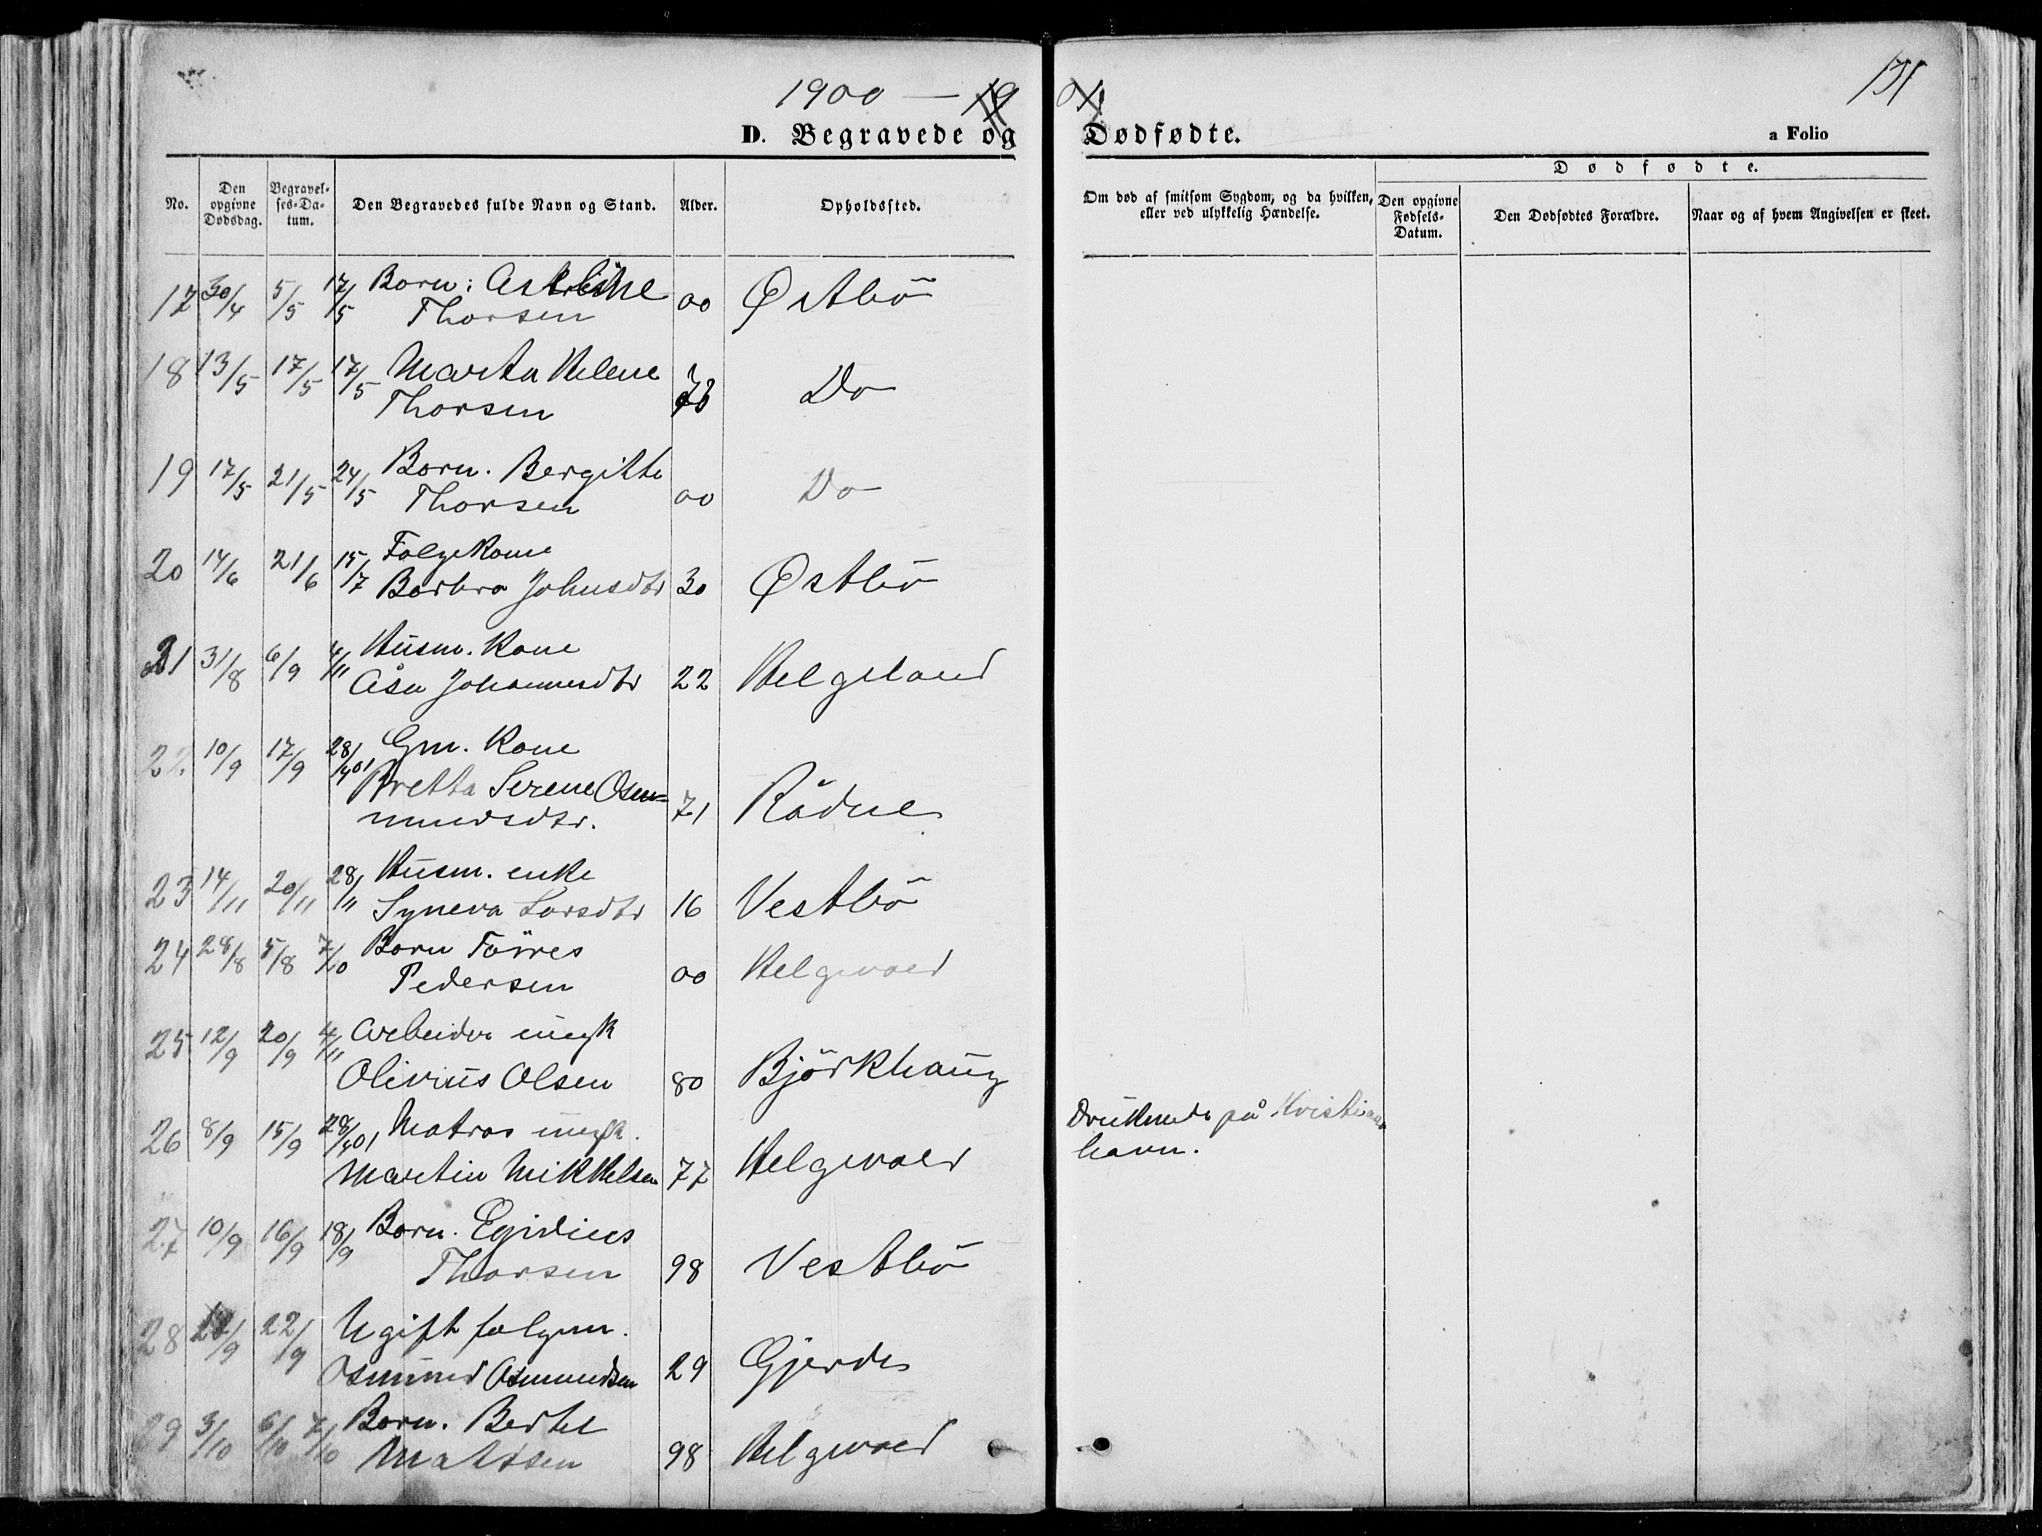 1900 — 19
D. Begravede og Dødfødte.
131
a Folio
No.
Den opgivne Dødsdag.
Begravel-
ses-Da-
tum.
Den Begravedes fulde Navn og Stand.
Alder.
Opholdssted.
Om død af smitsom Sygdom, og da hvilken,
eller ved ulykkelig Hændelse.
Dødfødte.
Den opgivne
Fødsels-
Datum.
Den Dødfødtes Forældre.
Naar og af hvem Angivelsen er skeet.
17 30/4 5/5 17/5 Barn:
Thorsen 00 Østbö
18 13/5 17/5 17/5 Marta Helene
Thorsen Do
19 17/5 21/5 24/5 Barn. Bergitte
Thorsen 00 Do
20 14/6 21/6 15/7 Folgekone
Barbra Johnsdtr 30 Østbö
21 31/8 6/9 4/11 Husm. Kone
Åsa Johannesdtr 22 Helgeland
22. 10/9 17/9 28/4 01 Gm. Kone
Bretta Serene Osm=
mundsdtr. 71 Rådne
23 14/11 20/11 28/11 Husm. enke
Syneva Larsdtr 16 Vestbö
24 28/8 5/8 7/10 Barn Törres
Pedersen 00 Helgevold
25 12/9 20/9 4/11 Arbeider ungk
Olivius Olsen 80 Björkhaug
26 8/9 15/9 28/4 01 Matros ungk.
Martin Mikkelsen 77 Helgevold
Druknede på Kristians
havn.
27 10/9 16/9 18/9 Barn. Egidius
Thorsen 98 Vestbö
28 22/9 Ugift folgm.
Osmund Osmundsen 29 Gjerde
29 3/10 6/10 7/10 Barn. Bertel
Matssen 98 Helgevold